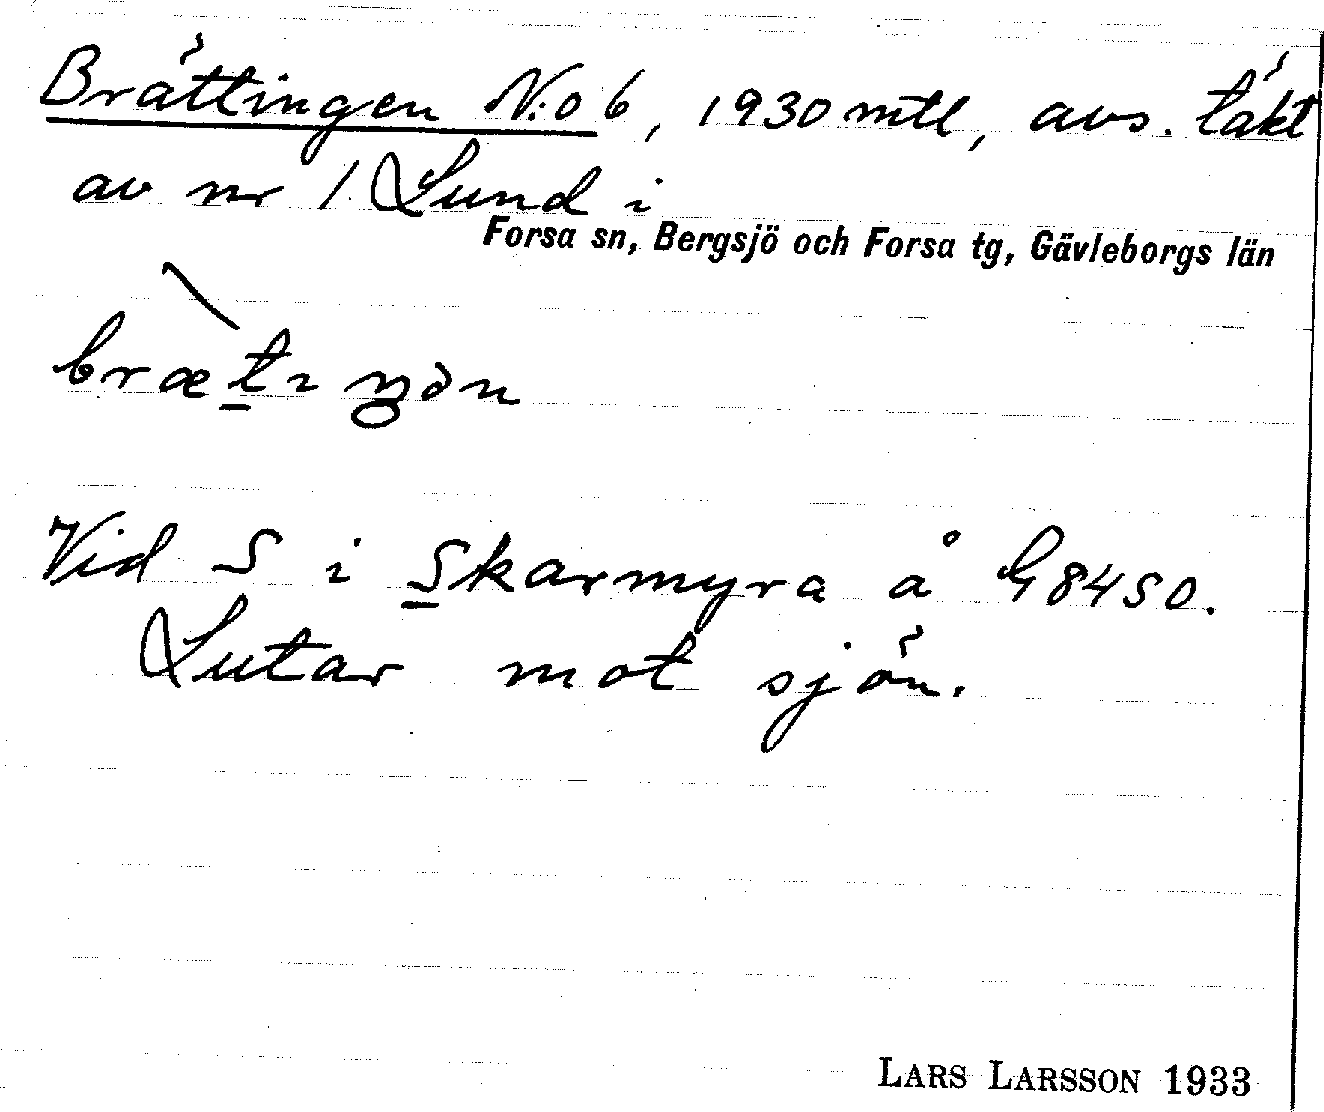 Brättingen N:o 6, 1930 mtl, avs. täkt
av nr 1 Lund i
Forsa sn, Bergsjö och Forsa tg, Gävleborgs län
Vid S i Skarmyra å G84SO.
Lutar mot sjön.
LARS LARSSON 1933